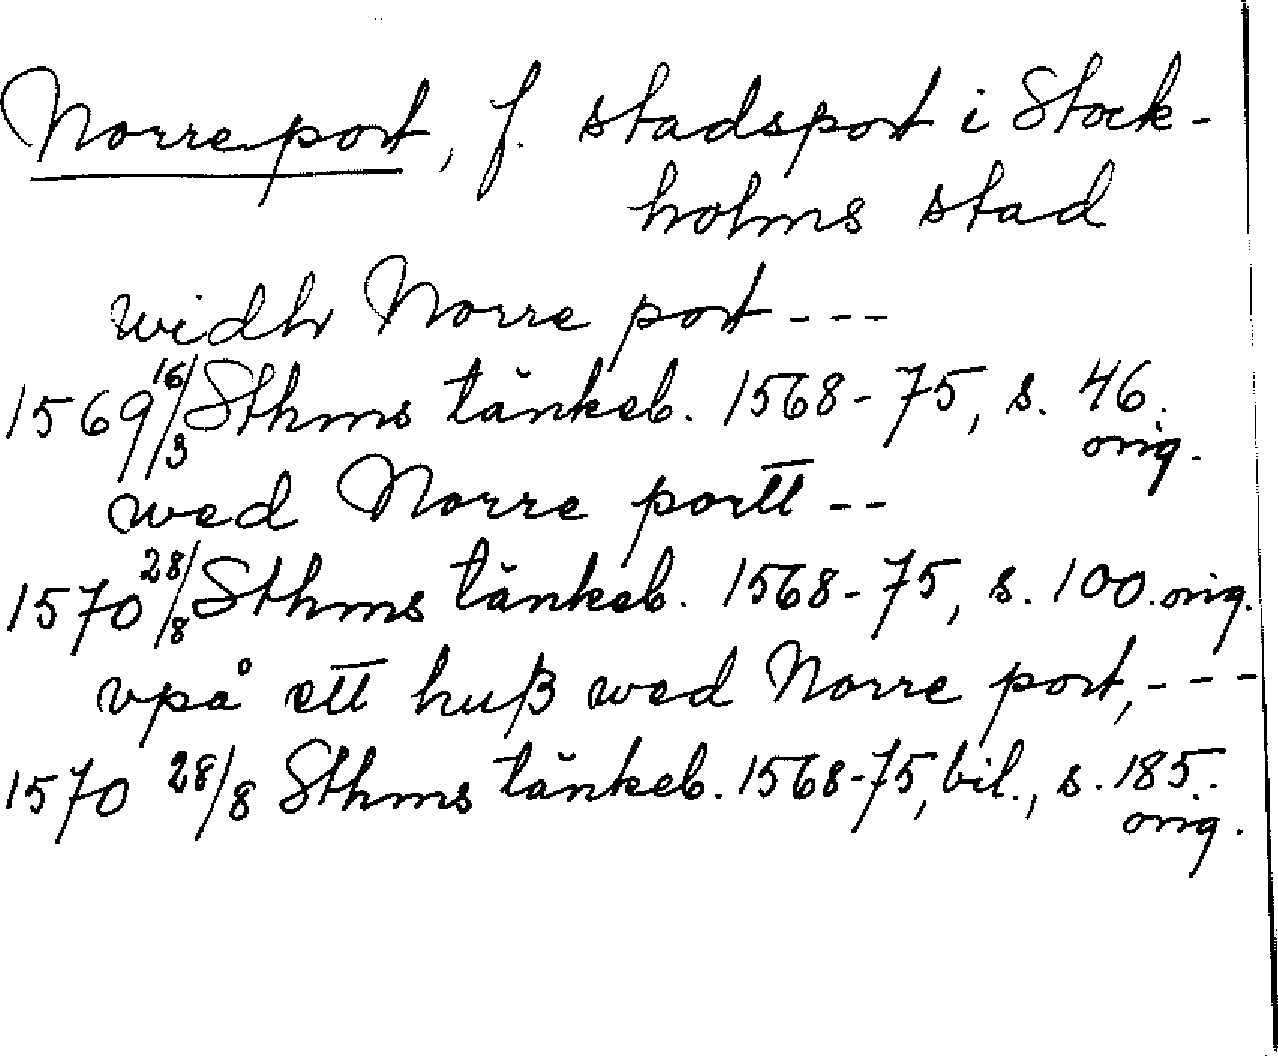 Norreport, f. stadsport i Stock-
holms stad
widh Norre port ---
1569 16/3 Sthms tänkeb. 1568-75, s. 46.
orig.
wed Norre portt --
1570 28/8 Sthms tänkeb. 1568-75, s. 100. orig.
vpå ett huß wed Norre port, ---
1570 28/8 Sthms tänkeb. 1568-75, bil., s. 185.
orig.